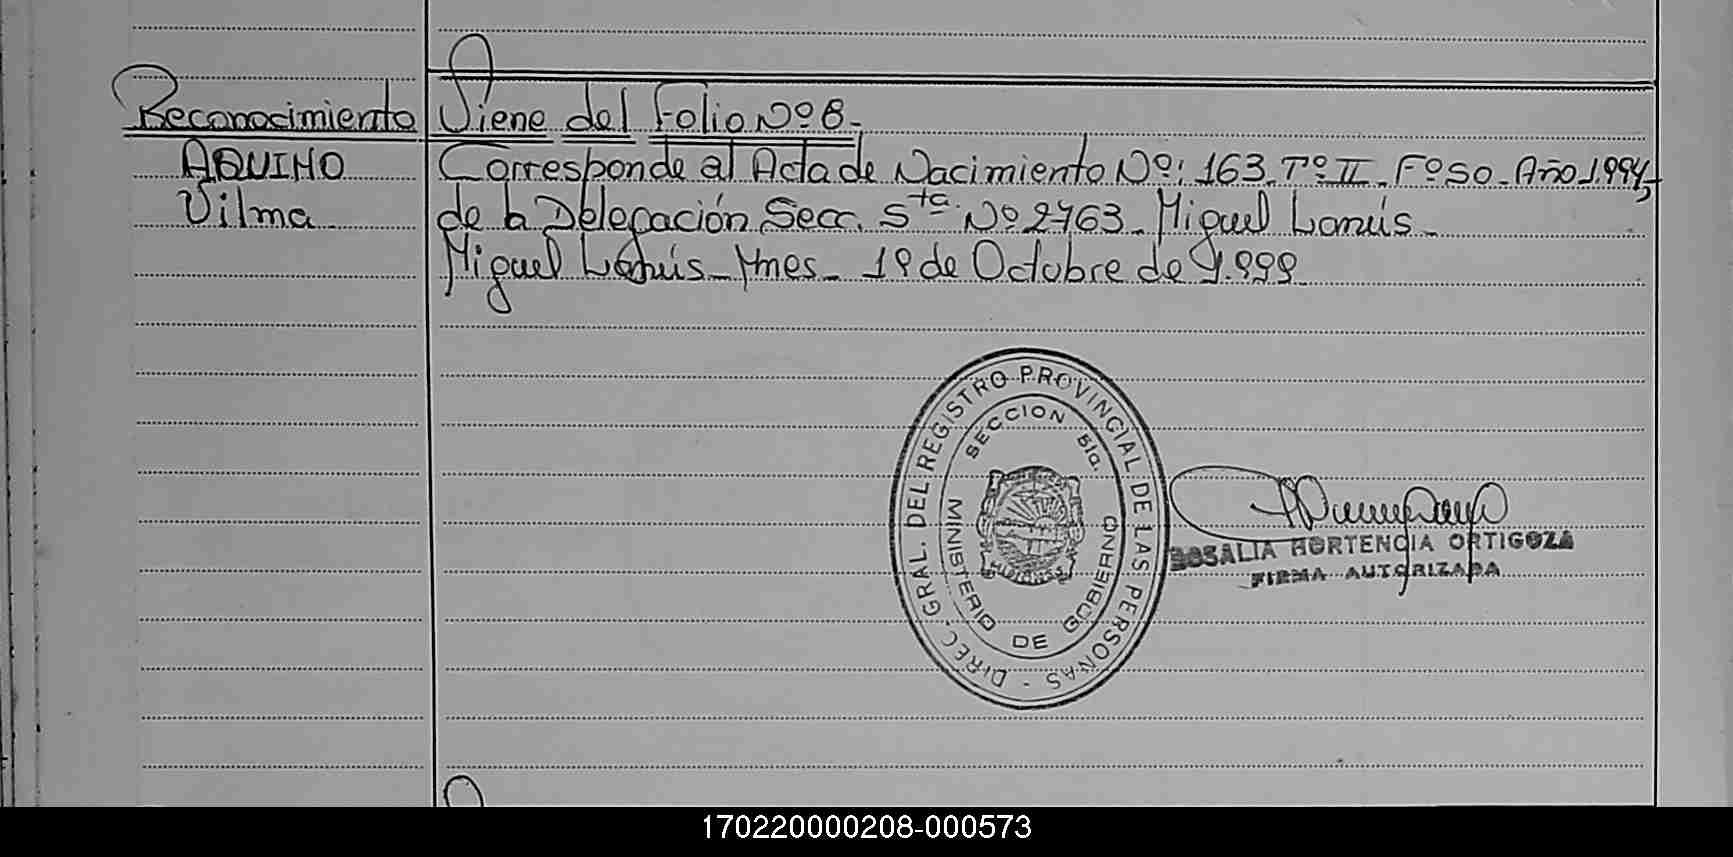 Reconocimiento
AQUINO
Vilma
Viene del Folio Nº 8.
Corresponde al Acta de Nacimiento Nº: 163. Tº II. Fº 50. Año 1.994,
de la Delegación Secc. 5ta. Nº 2763. Miguel Lanús.
Miguel Lanús - Mnes. 19 de Octubre de 1.999
DIREC. GRAL. DEL REGISTRO PROVINCIAL DE LAS PERSONAS -
SECCION 5ta.
MINISTERIO DE GOBIERNO
ROSALIA HORTENCIA ORTIGOZA
FIRMA AUTORIZADA
170220000208-000573